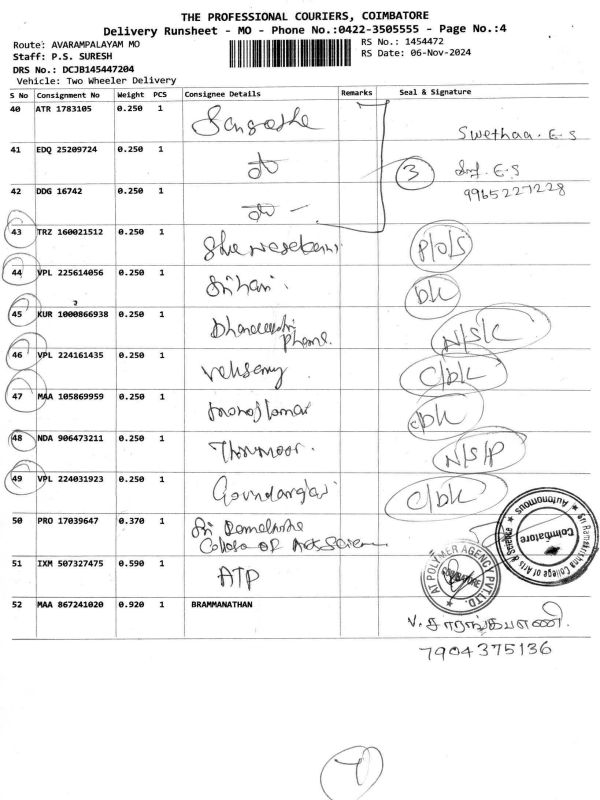 THE PROFESSIONAL COURIERS, COIMBATORE
Delivery Runsheet - MO - Phone No.:0422-3505555 - Page No.:4
Route: AVARAMPALAYAM MO
RS No.: 1454472
Staff: P.S. SURESH
RS Date: 06-Nov-2024
DRS No.: DCJB145447204
Vehicle: Two Wheeler Delivery
S No Consignment No Weight PCS Consignee Details Remarks Seal & Signature
40 ATR 1783105 0.250 1
Swethaa. E-S
41 EDQ 25209724 0.250 1
3
E-S
9965227228
42 DDG 16742 0.250 1
43 TRZ 160021512 0.250 1 P/O/S
44 VPL 225614056 0.250 1 Srihari. DK
45 KUR 1000866938 0.250 1 N/S/C
46 VPL 224161435 0.250 1 C/DK
47 MAA 105869959 0.250 1 Manojkumar C/DK
48 NDA 906473211 0.250 1 N/S/P
49 VPL 224031923 0.250 1 C/DK
50 PRO 17039647 0.370 1 Sri
College OF Arts Science
Sri Ramakrishna College of Arts & Science
Autonomous
Coimbatore
51 IXM 507327475 0.590 1 ATP
AT POLYMER AGENCY PVT.LTD.
COIMBATORE
52 MAA 867241020 0.920 1 BRAMMANATHAN
V. சாரங்கபாணி.
7904375136